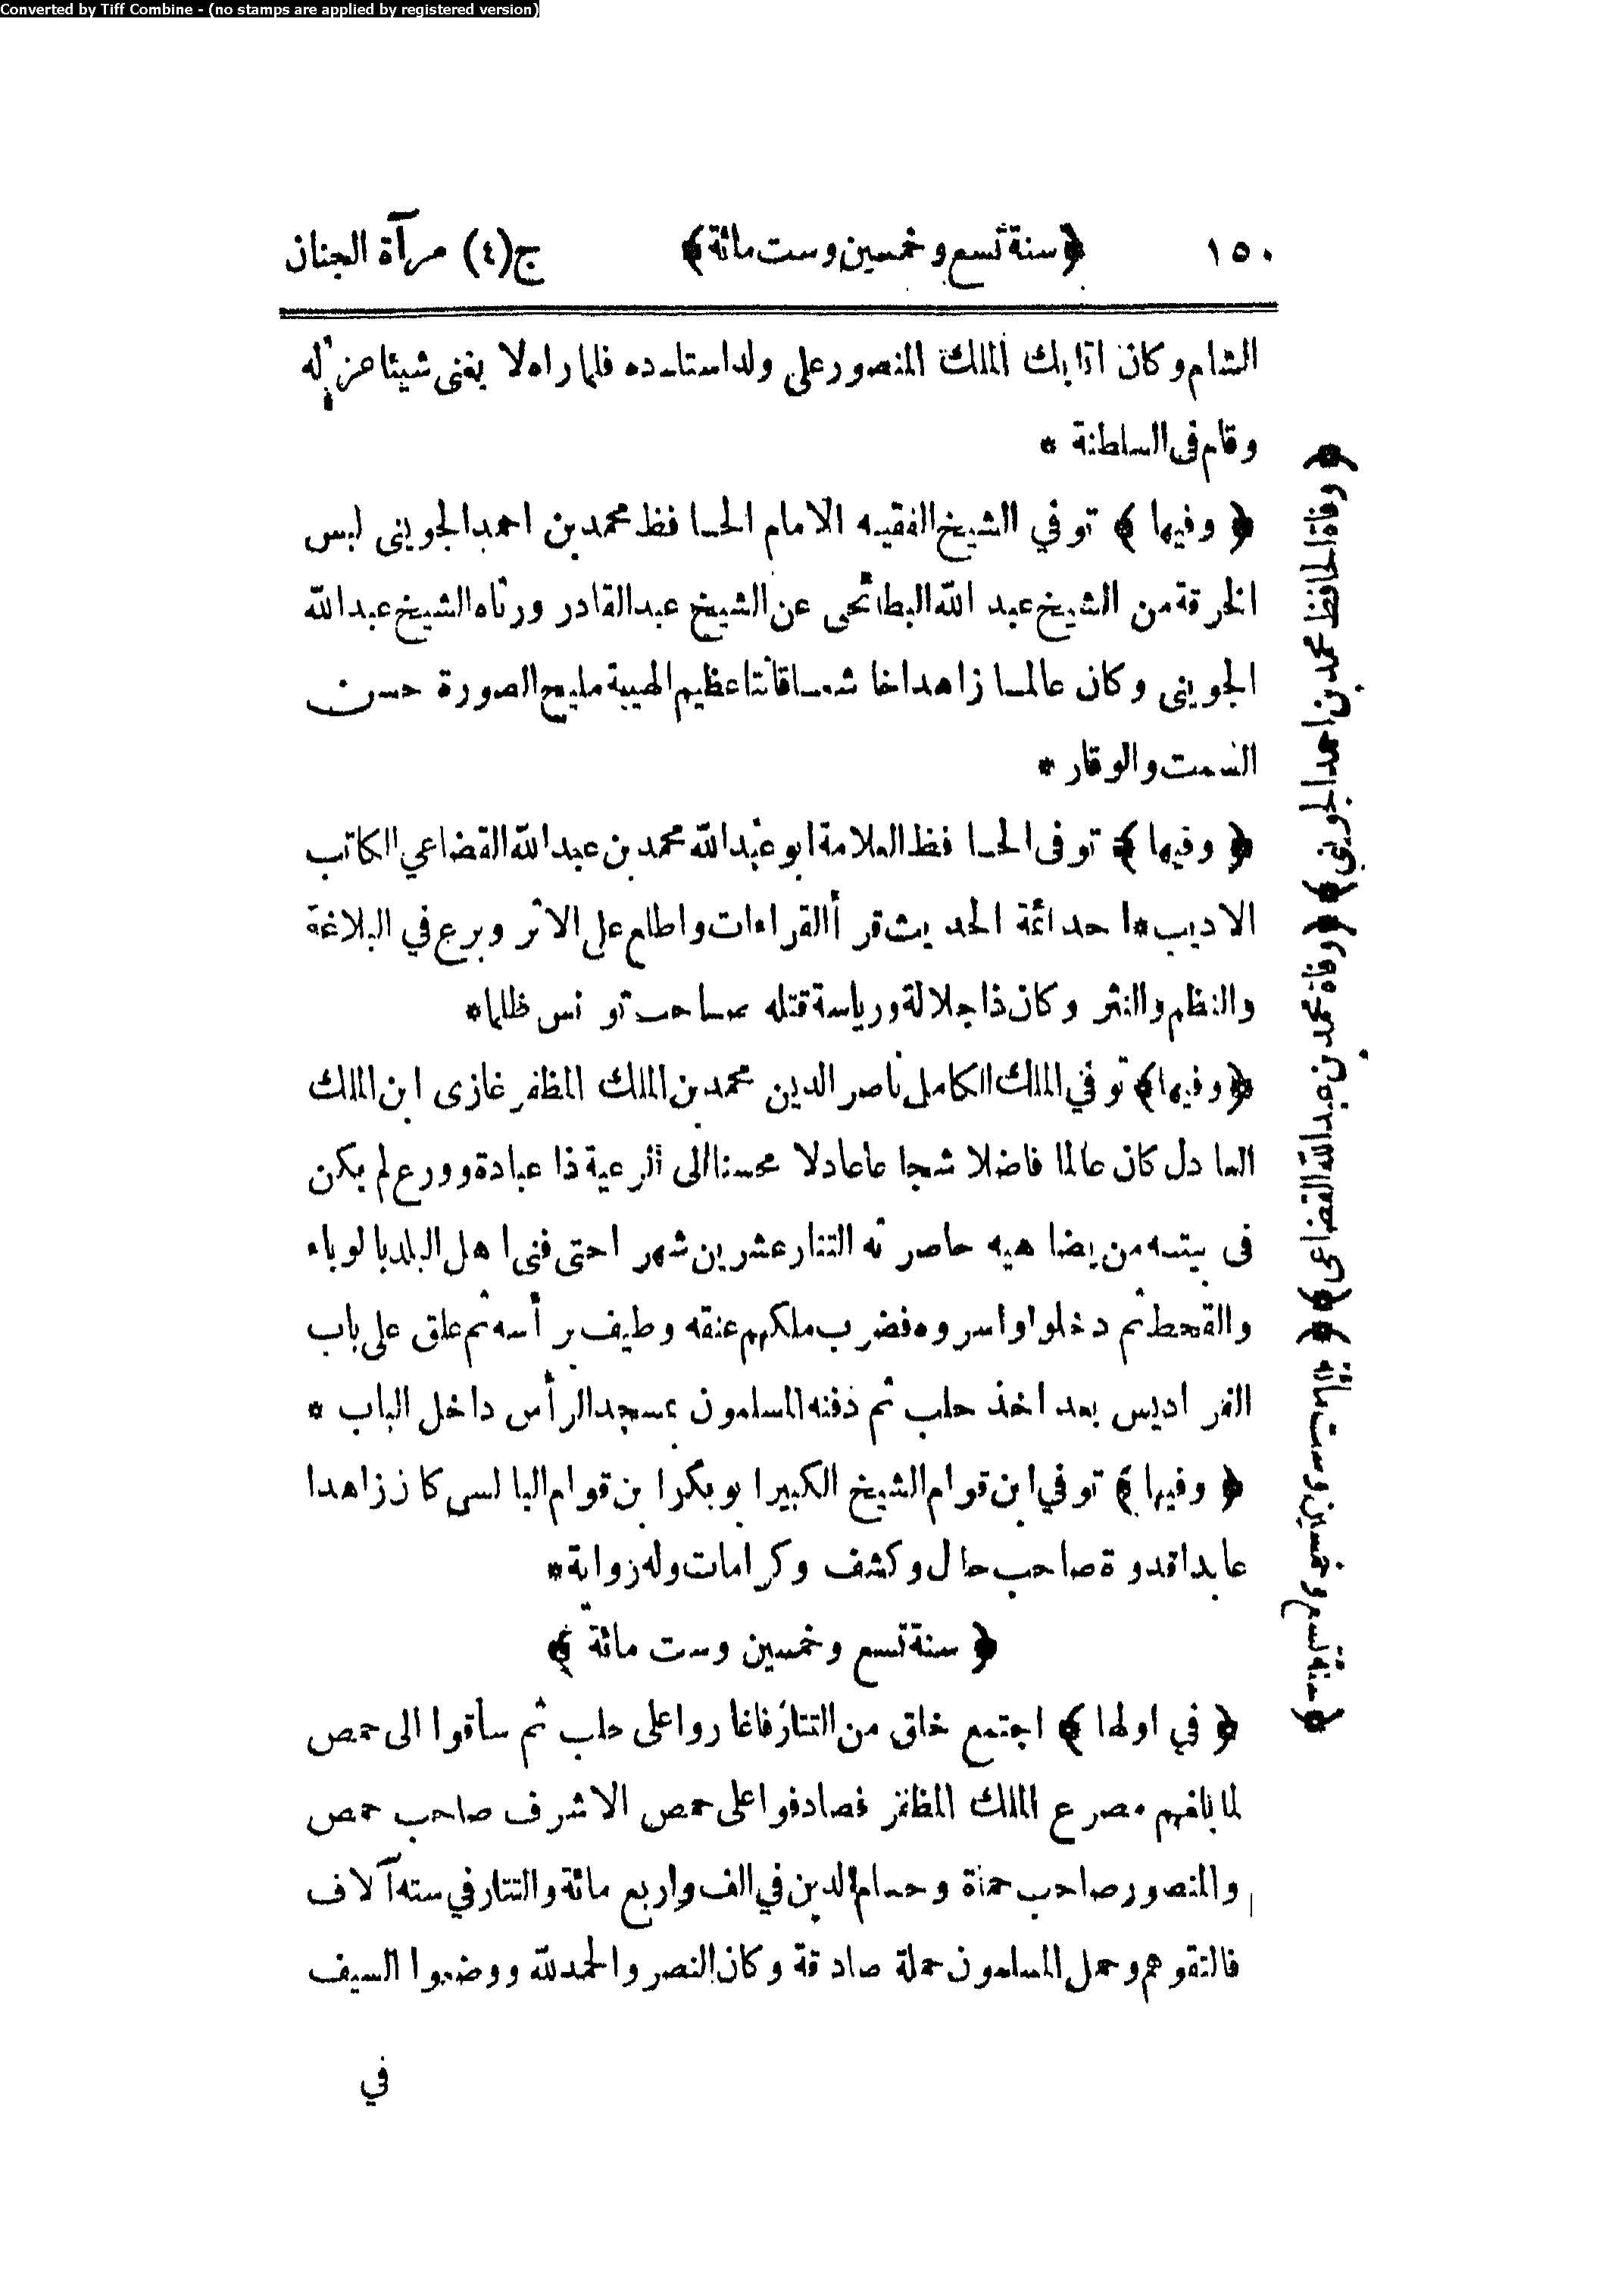 Converted by Tiff Combine - (no stamps are applied by registered version)
١٥٠ ﴿ سنة تسع وخمسين وست مائة ﴾ ج(٤) مرآة الجنان
الشام وكان اتابك الملك المنصور على ولد استاده فلما راه لا يغنى شيئا عزله
وقام فى السلطنة *
﴿ وفيها ﴾ توفي الشيخ الفقيه الامام الحافظ محمد بن احمد الجوينى لبس
الخرقة من الشيخ عبد الله البطائحى عن الشيخ عبد القادر ورثاه الشيخ عبد الله
الجوينى وكان عالما زاهدا خاشعا قانتا عظيم الهيبة مليح الصورة حسن
السمت والوقار *
﴿ وفيها ﴾ توفى الحافظ العلامة ابو عبد الله محمد بن عبد الله القضاعي الكاتب
الاديب * احد ائمة الحديث قرأ القراءات واطلع على الاثر وبرع في البلاغة
والنظم والنثر وكان ذا جلالة ورياسة قتله صاحب تونس ظلما *
﴿ وفيها ﴾ توفي الملك الكامل ناصر الدين محمد بن الملك المظفر غازى ابن الملك
العادل كان عالما فاضلا شجاعا عادلا محسنا الى الرعية ذا عبادة وورع لم يكن
فى بيته من يضاهيه حاصرته التتار عشرين شهرا حتى فنى اهل البلد بالوباء
والقحط ثم دخلوا واسروه فضرب ملكهم عنقه وطيف برأسه ثم علق على باب
الفراديس بعد اخذ حلب ثم دفنه المسلمون بمسجد الرأس داخل الباب *
﴿ وفيها ﴾ توفي ابن قوام الشيخ الكبير ابو بكر ابن قوام البالسى كان زاهدا
عابدا قدوة صاحب حال وكشف وكرامات وله زواية *
﴿ سنة تسع وخمسين وست مائة ﴾
﴿ في اولها ﴾ اجتمع خلق من التتار فاغاروا على حلب ثم ساقوا الى حمص
لما بلغهم مصرع الملك المظفر فصادفوا على حمص الاشرف صاحب حمص
والمنصور صاحب حماة وحسام الدين في الف واربع مائة والتتار في سته آلاف
فالتقوهم وحمل المسلمون حملة صادقة وكان النصر والحمد لله ووضعوا السيف
في
﴿ وفاة الحافظ محمد بن احمد الجوينى ﴾ ﴿ وفاة محمد بن عبد الله القضاعى ﴾ ﴿ سنة تسع وخمسين وست مائة ﴾